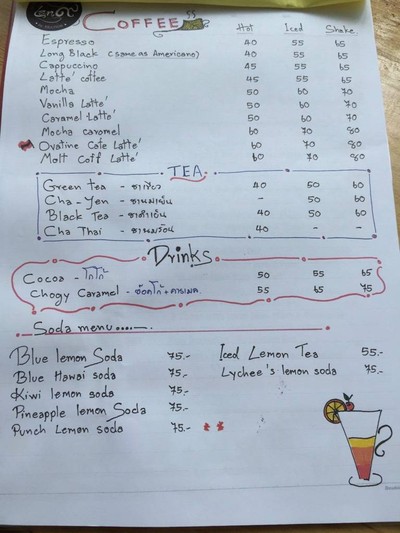 COFFEE Hot Iced Shake
Espresso 40 55 65
Long Black (same as Americano) 40 55 65
Cappuccino 45 55 65
Latte' coffee 45 55 65
Mocha 50 60 70
Vanilla Latte' 50 60 70
Caramel Latte' 50 60 70
Mocha caramel 60 70 80
Ovaltine Cafe Latte' 60 70 80
Malt Coff Latte' 60 70 80
TEA
Green tea - ชาเขียว 40 50 60
Cha-Yen - ชานมเย็น - 50 60
Black Tea - ชาดำเย็น 40 50 60
Cha Thai - ชานมร้อน 40 - -
Drinks
Cocoa - โกโก้ 50 55 65
Chogy Caramel - ช๊อคโก้+คาราเมล 55 65 75
Soda menu......
Blue lemon Soda 75.- Iced Lemon Tea 55.-
Blue Hawai soda 75.- Lychee's lemon soda 75.-
Kiwi lemon soda 75.-
Pineapple lemon Soda 75.-
Punch Lemon soda 75.-